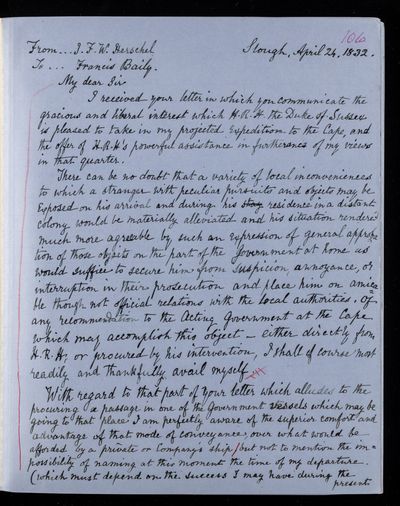 106
From... J. F. W. Herschel Slough, April 24, 1832.
To... Francis Baily.
My dear Sir
I received your letter in which you communicate the
gracious and liberal interest which H.R.H. the Duke of Sussex
is pleased to take in my projected Expedition to the Cape, and
the offer of H.R.H's powerful assistance in furtherance of my views
in that quarter.
There can be no doubt that a variety of local inconveniences
to which a stranger with peculiar pursuits and objects may be
Exposed on his arrival and during his stay residence in a distant
colony would be materially alleviated and his situation rendered
much more agreable by such an Expression of general approba
tion of those objects on the part of the Government at home as
would suffice to secure him from suspicion, annoyance, or
interruption in their prosecution and place him on amica=
ble though not official relations with the local authorities. Of
any recommendation to the Acting Government at the Cape
which may accomplish this object – either directly from
H.R.H, or procured by his intervention, I shall of course most
readily and thankfully avail myself
With regard to that part of your letter which alludes to the
procuring a passage in one of the Government vessels which may be
going to that place, I am perfectly aware of the superior comfort and
advantage of that mode of conveyance, over what would be
afforded by a private or Company's ship, but not to mention the im=
possibility of naming at this moment the time of my departure.
(which must depend on the success I may have during the
present